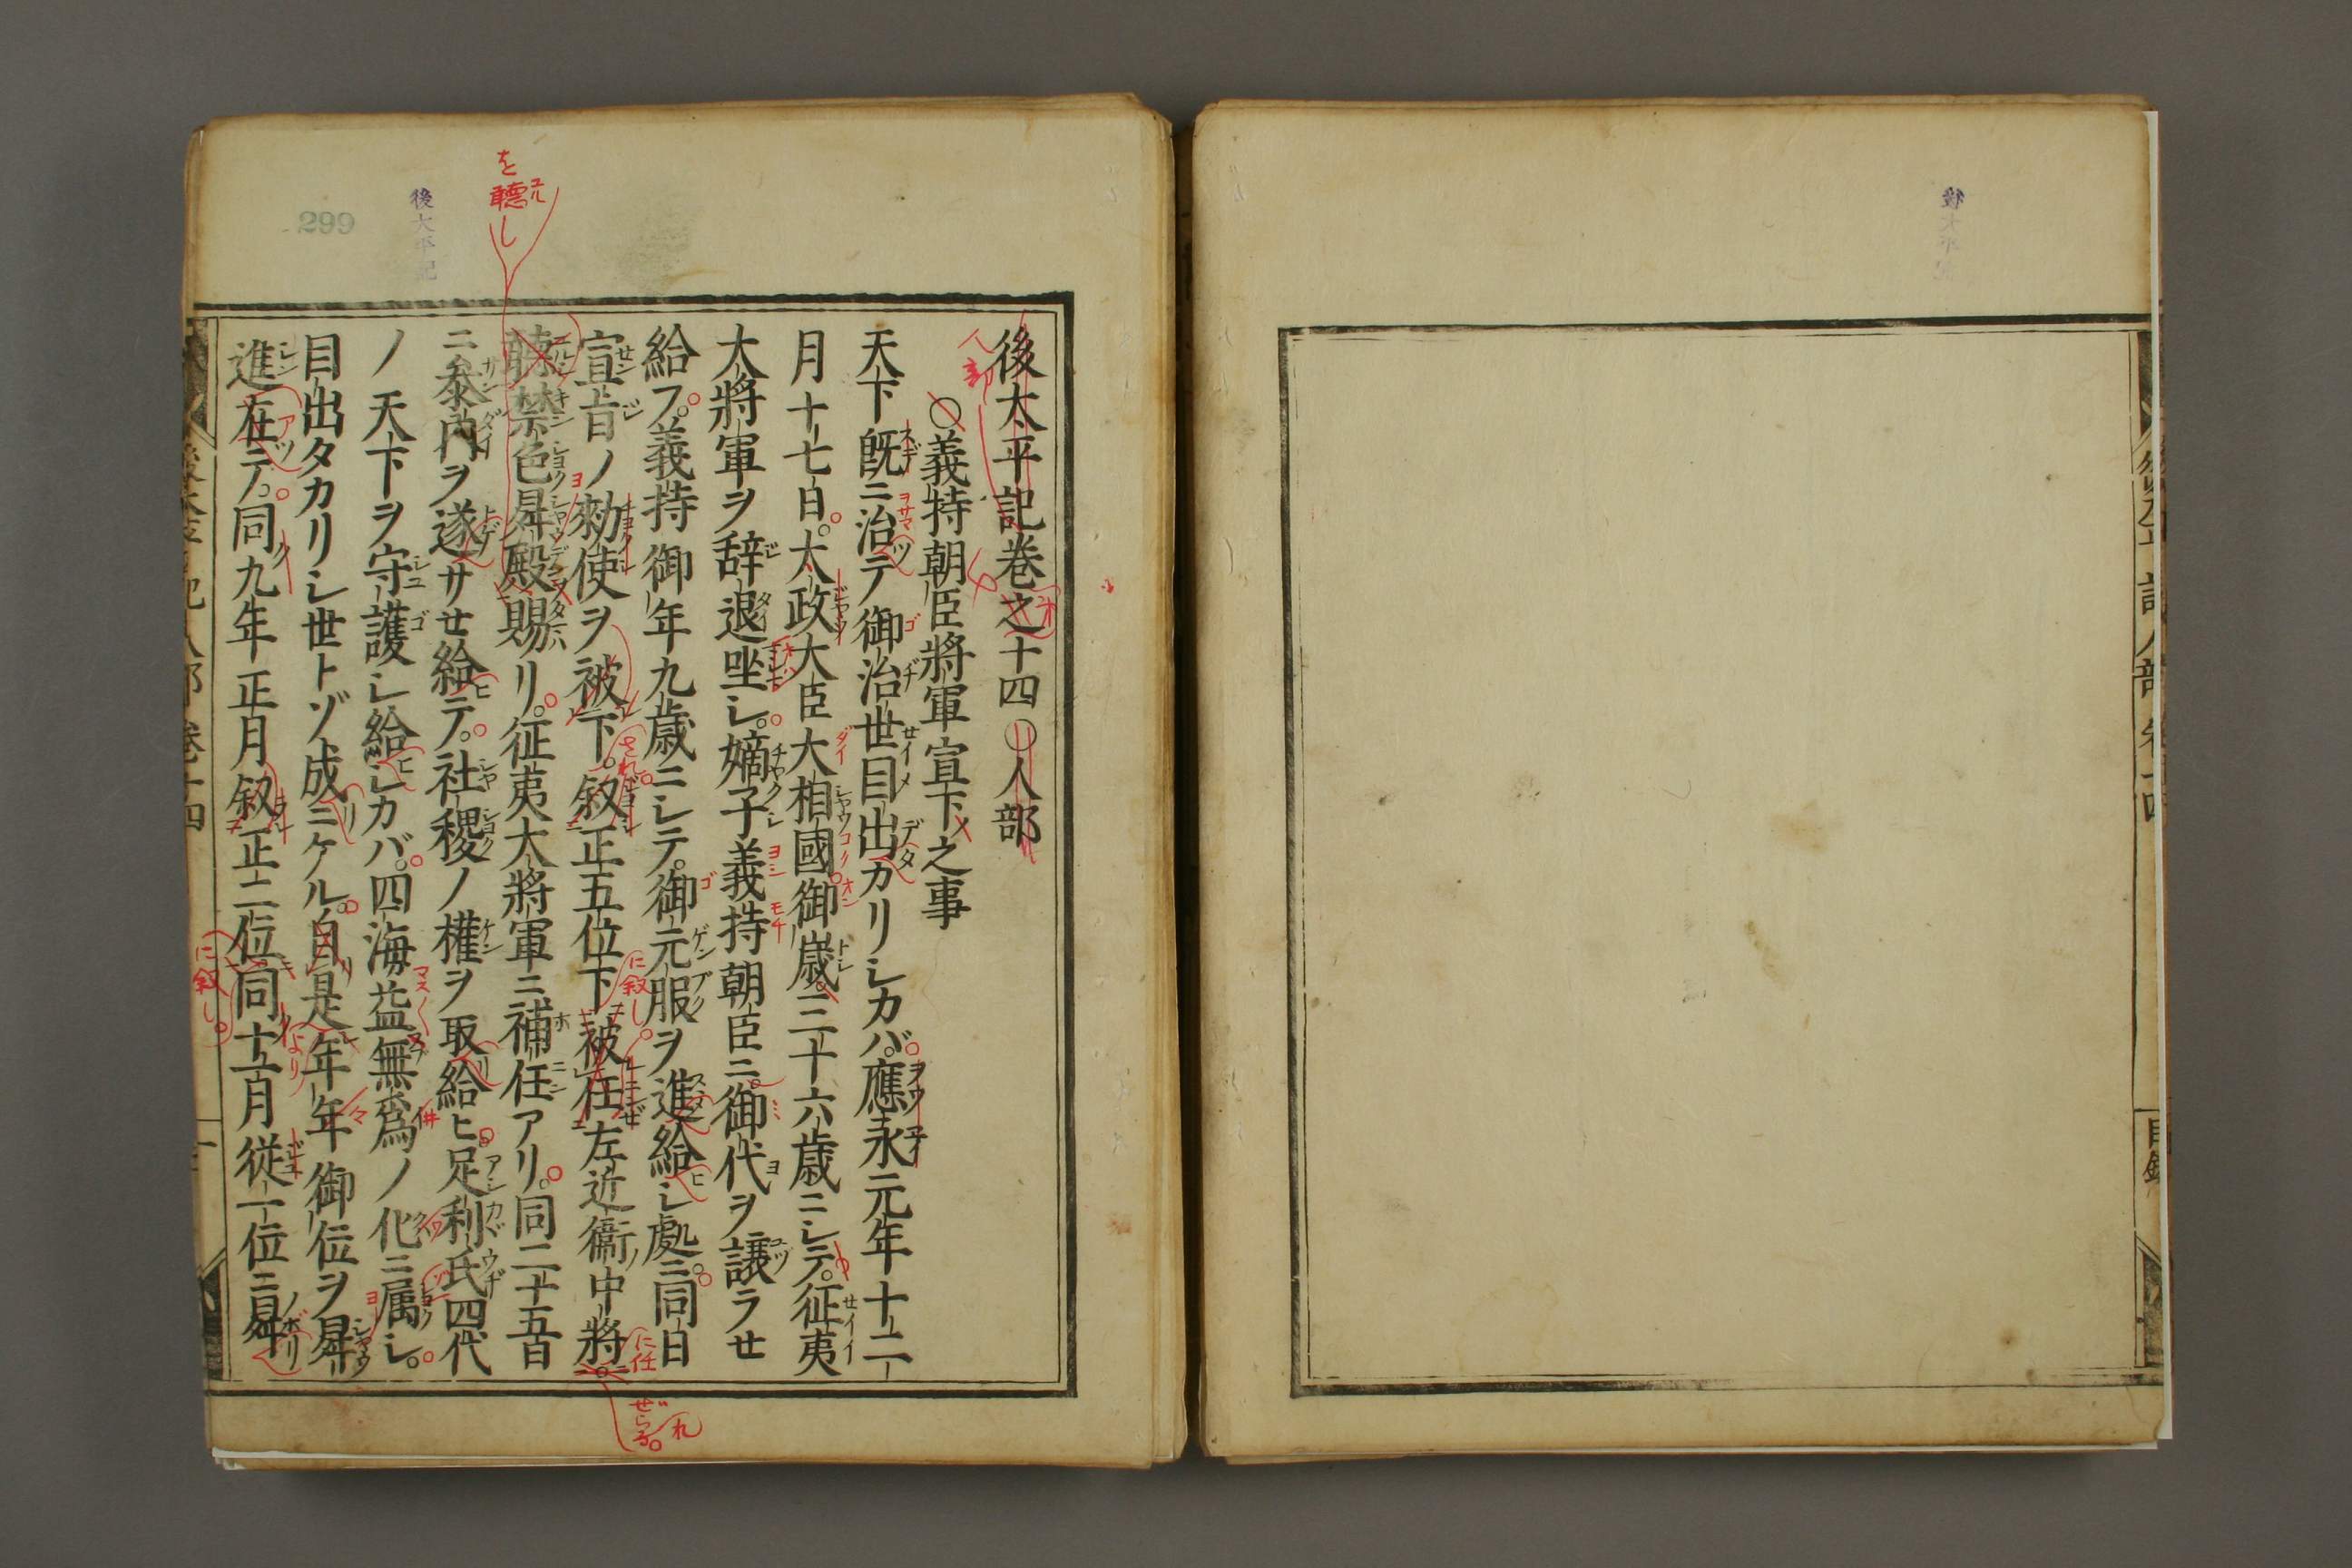 後太平記巻之十四〇人部
〇義持朝臣將軍宣下之事
天下既ニ治テ御治世目出カリシカバ。應永元年十二
月十七日。太政大臣大相國御歳。三十六歳ニシテ。征夷
大將軍ヲ辞退坐シ。嫡子義持朝臣ニ。御代ヲ譲ラセ
給フ。義持御年九歳ニシテ。御元服ヲ進給シ處ニ。同日
宣旨ノ勅使ヲ被下。叙正五位下被任左近衞中將。
聴禁色昇殿賜リ。征夷大將軍ニ補任アリ。同二十五日
ニ参内ヲ遂サセ給テ。社稷ノ權ヲ取給ヒ。足利氏四代
ノ天下ヲ守護シ給シカバ。四海益無爲ノ化ニ属シ。
目出タカリシ世トゾ成ニケル。自是年年御位ヲ昇
進在テ。同九年正月叙正二位同十一月従一位ニ昇
後太平記人部巻十四
一
後太平記
299
を聴し
人部
に叙し。
に任
ぜられ
に叙し。
目録
後太平記